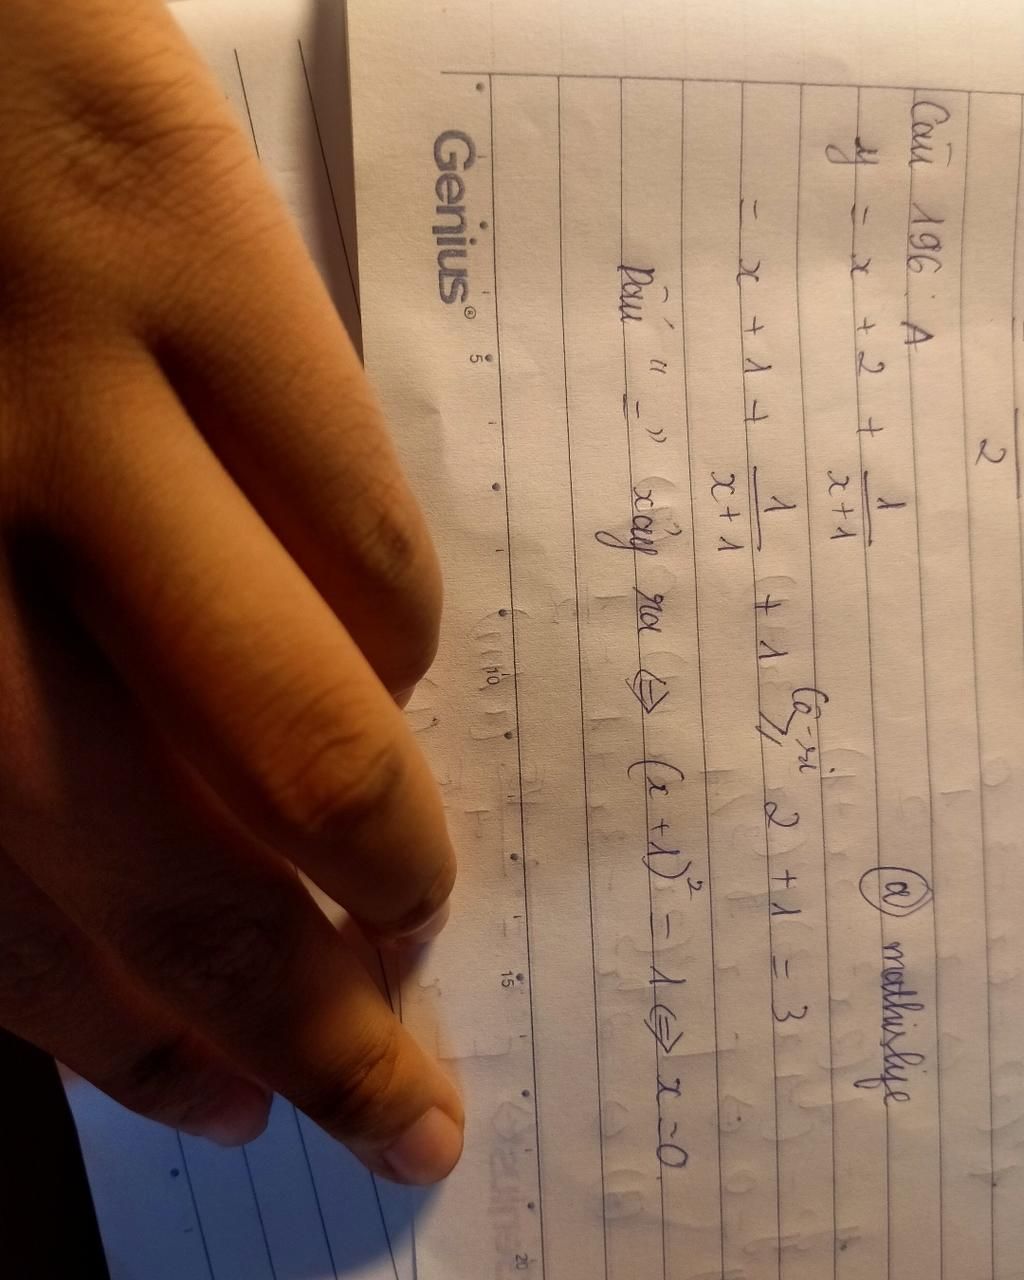 2
Câu 196: A
y = x + 2 + 1/(x+1) @mathislife
= x + 1 + 1/(x+1) + 1 ≥ 2 + 1 = 3
Cô-si
Dấu "=" xảy ra ⇔ (x+1)² = 1 ⇔ x = 0
5 10 15 20
Genius®